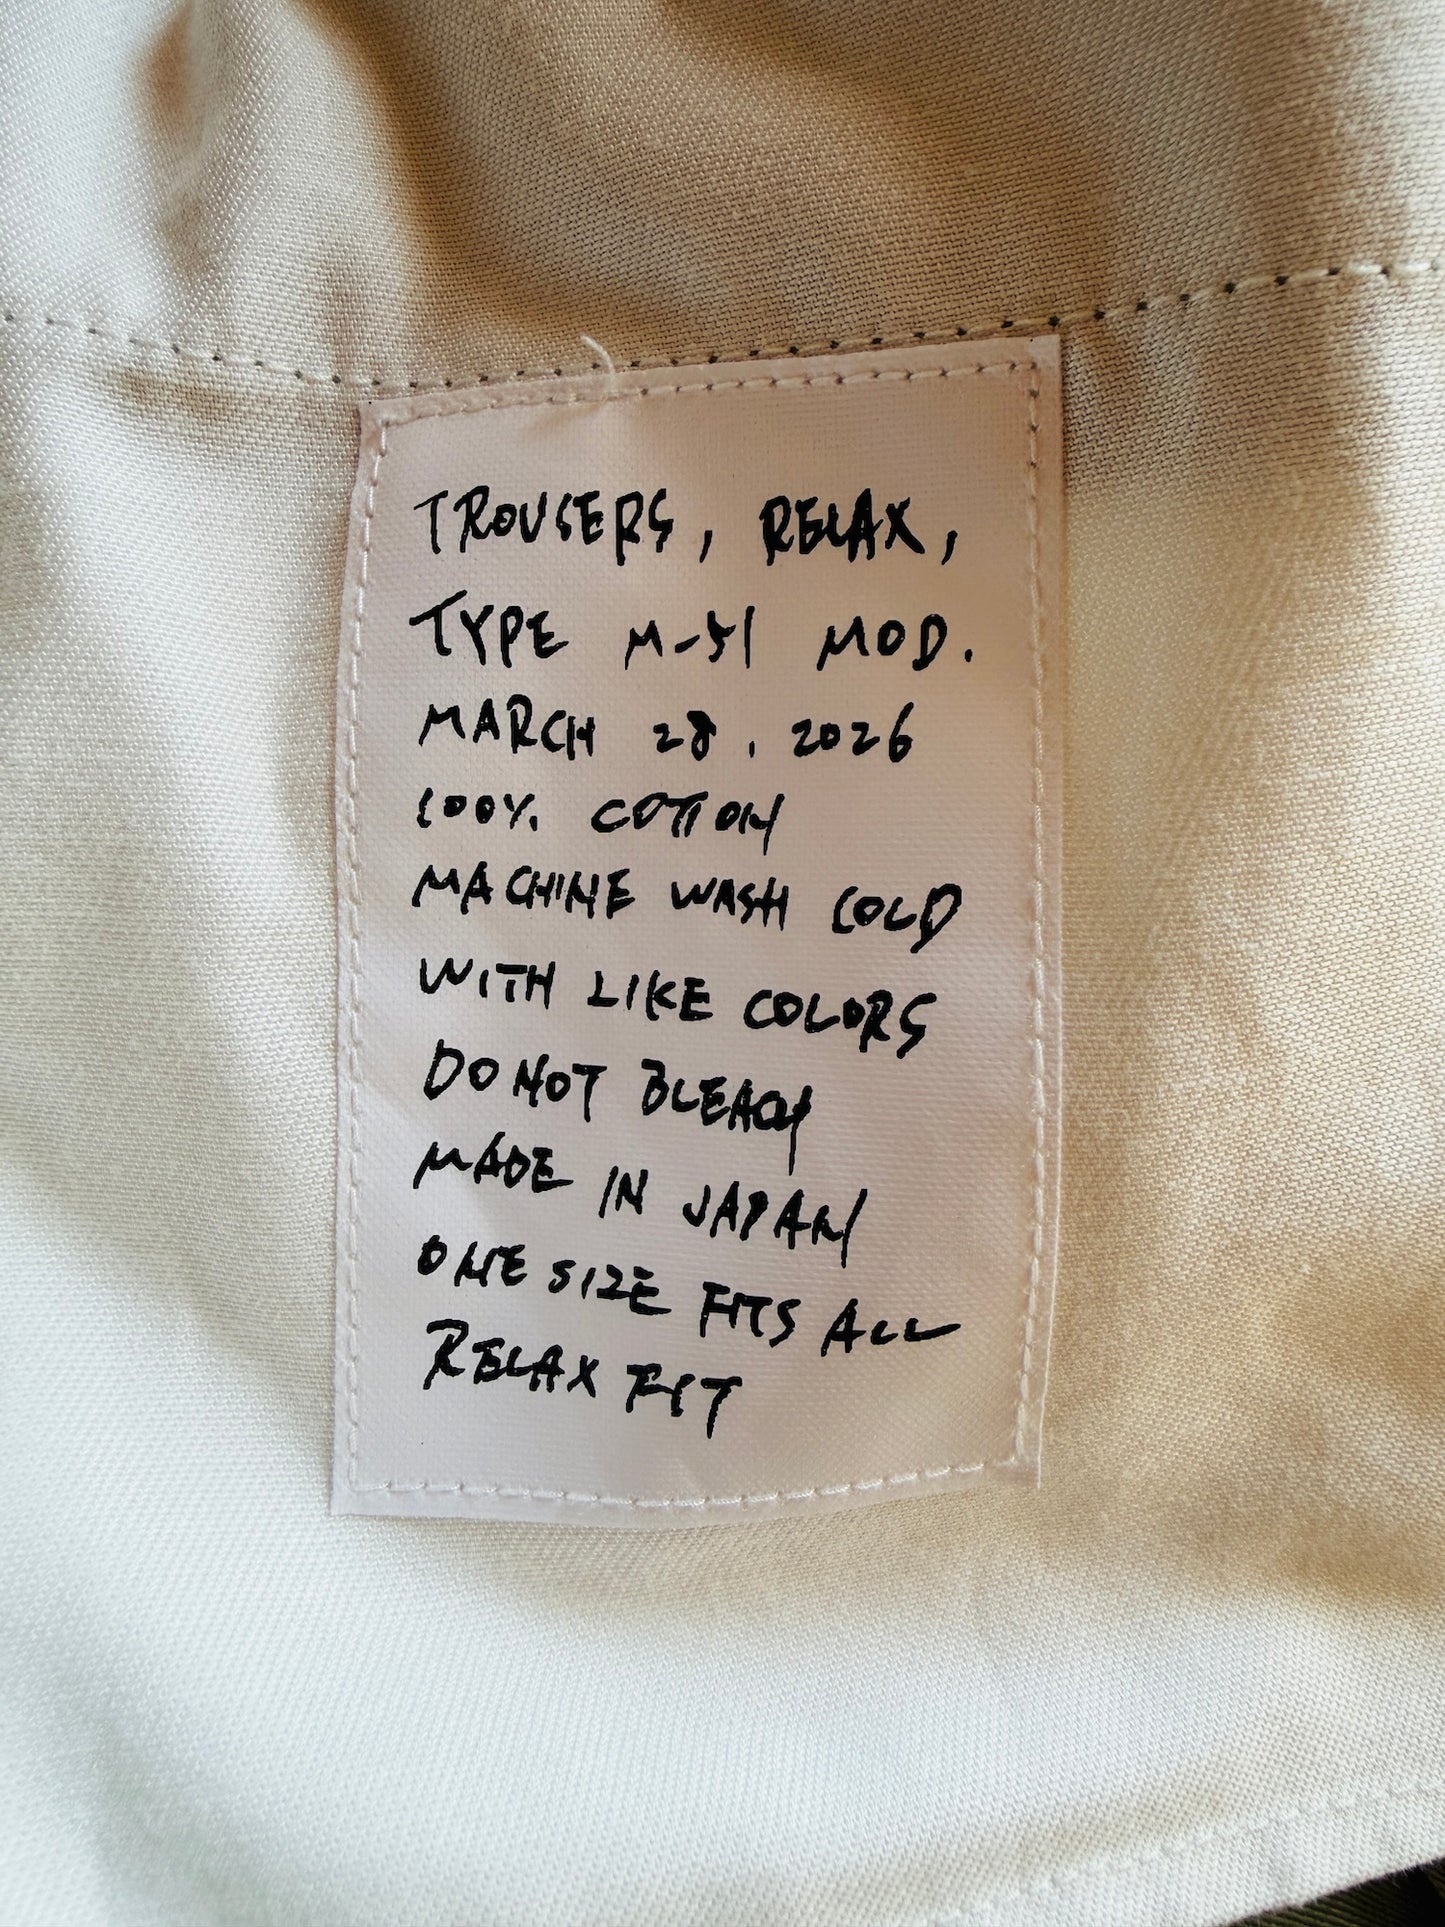 TROUSERS, RELAX,
TYPE M-51 MOD.
MARCH 28, 2026
100% COTTON
MACHINE WASH COLD
WITH LIKE COLORS
DO NOT BLEACH
MADE IN JAPAN
ONE SIZE FITS ALL
RELAX FIT